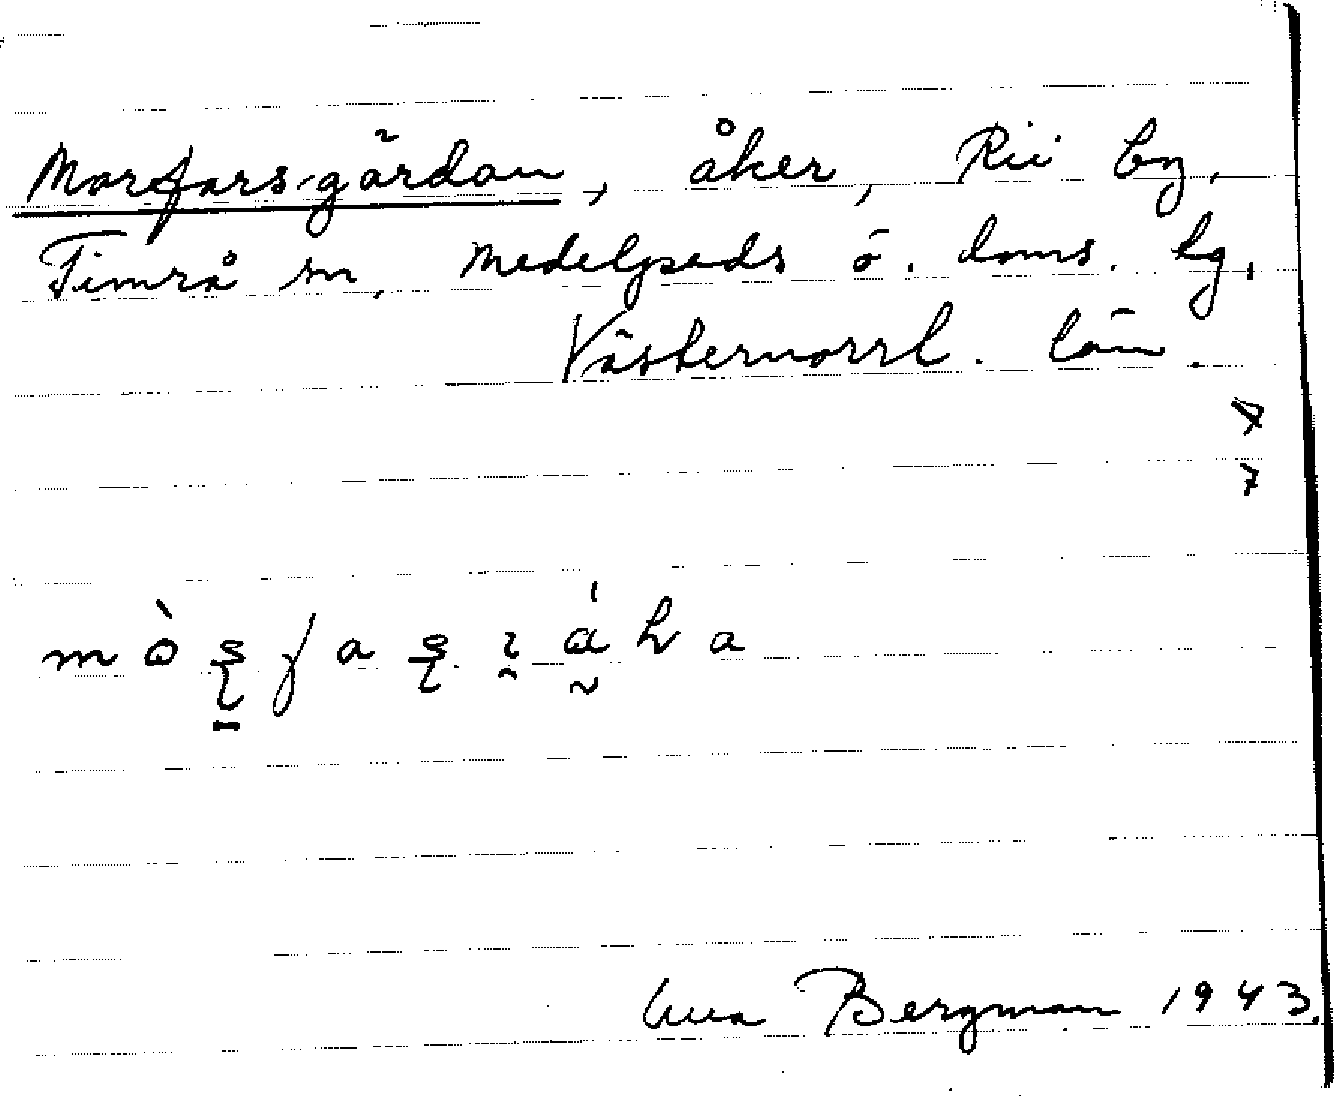 Morfars-gärdan, åker, Rii by,
Timrå sn, Medelpads ö. doms. hg,
Västernorrl. län.
Bergman 1943.